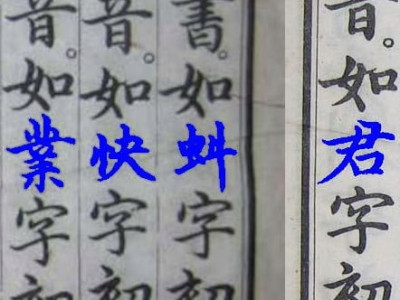 音。如君字初
書。如虯字初
音。如快字初
音。如業字初